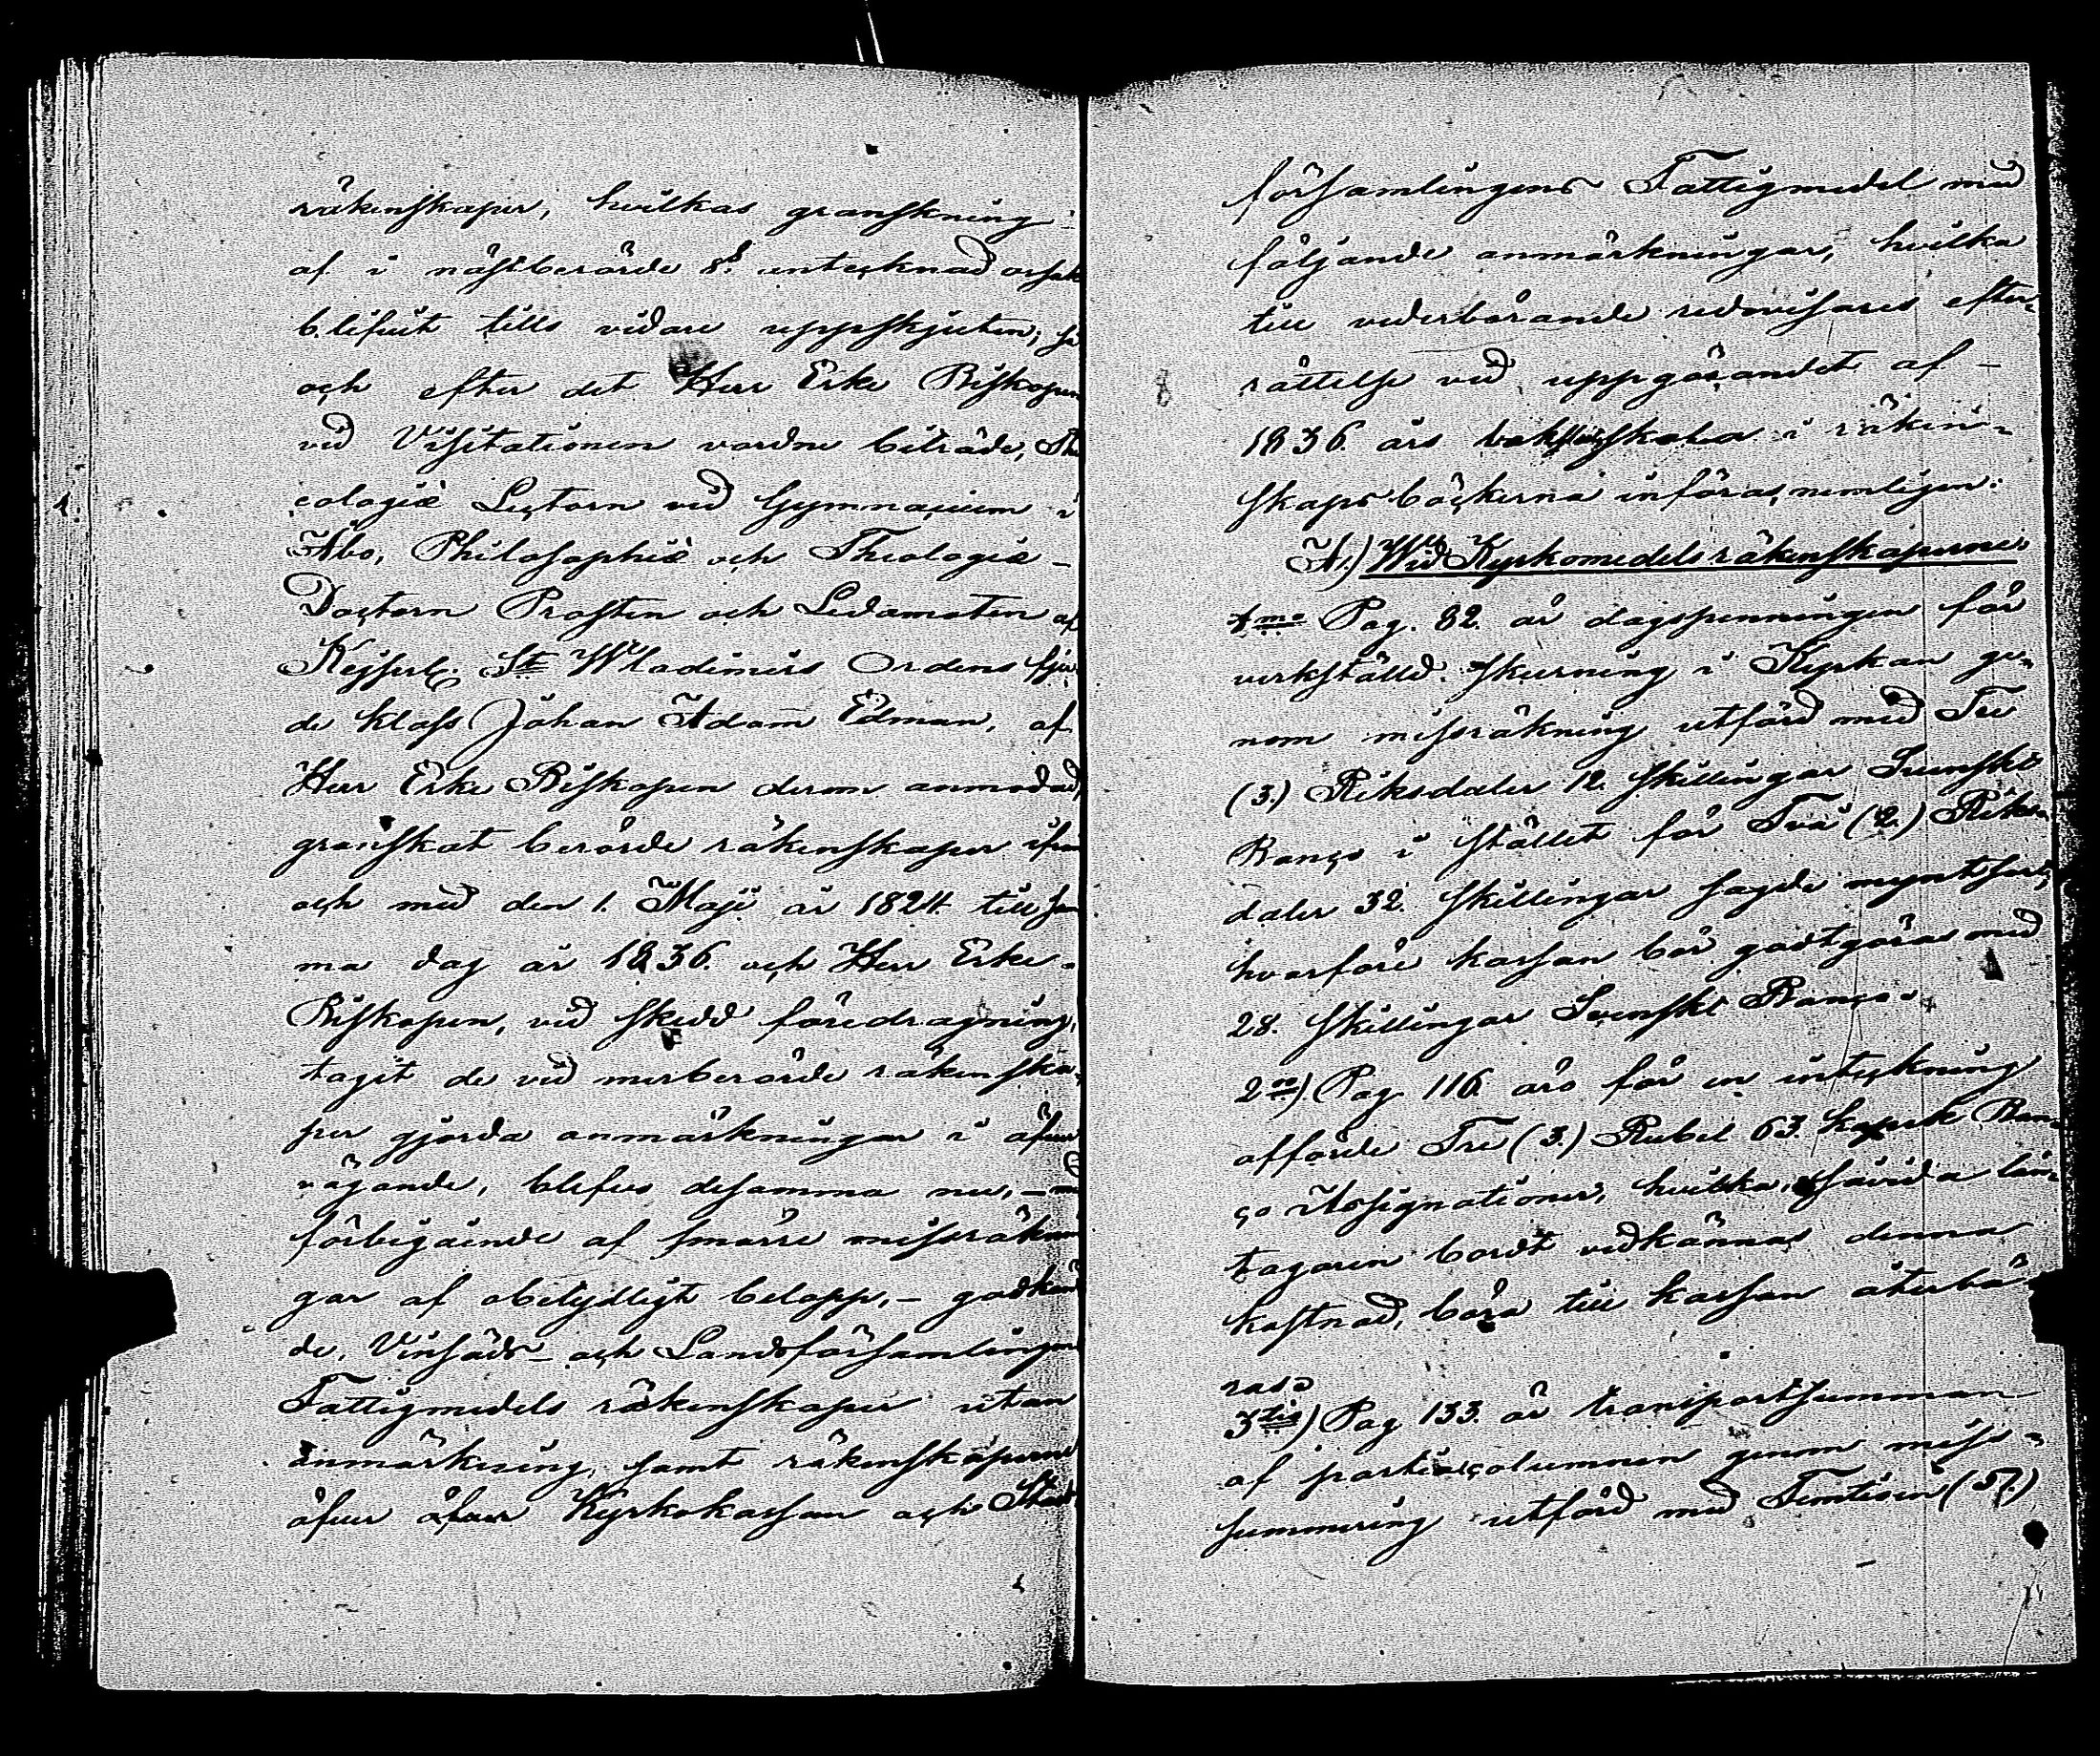 räkenskaper, hvilkas granskning
af i nästberörde §. antecknad orsak
blifvit tills vidare uppskjuten; så
och efter det Herr Erke Biskopen
vid Visitationen vordne biträde, The
ologiæ Lectorn vid Gymnasium i
Åbo, Philosophiæ och Theologiæ
Doctorn Prosten och Ledamoten af
Kejserl. St Wladimirs Ordens fjer
de klass Johan Adam Edman, af
Herr Erke Biskopen derom anmodad,
granskat berörde räkenskaper ifrån
och med den 1. Maji år 1824. till sam
ma dag år 1836. och Herr Erke-
Biskopen, vid skedd föredragning,
tagit de vid merberörde räkenska-
per gjorda anmärkningar i öfver
vägande, blefvo desamma nu, - med
förbigående af smärre missräknin
gar af obetydligt belopp, - godkän
de, Vinsäds- och Landsförsamlingens
Fattigmedels räkenskaper utan
anmärkning, samt räkenskaperne
öfver öfver Kyrkokassan och Stads
församlingens Fattigmedel med
följande anmärkningar, hvilka
till vederbörande redovisares efter-
rättelse vid uppgörandet af
1836. års i räken-
skaps böckerna införas, nemligen:
A.) Wid Kyrkomedels räkenskaperne.
1mo Pag. 82. är dagspenningen för
verkställd skurning i Kyrkan ge-
nom missräkning utförd med Tre
(3.) Riksdaler 12. skillingar Svenskt
Banco i stället för Två (2.) Riks-
daler 32. skillingar sagde myntsort,
hvarföre kassan bör godtgöras med
28. skillingar Svenskt Banco.
2do) Pag. 116. äro för en inteckning
afförde Tre (3.) Rubel 63. kopek Ban-
co Assignationer, hvilka, såvida lån-
tagaren bordt vidkännas denna
kostnad, böra till kassan återbä
ras.
3tio) Pag 133. är transportsumman
af partiacolumnen genom miss-
summering utförd med Femtisju (57.)